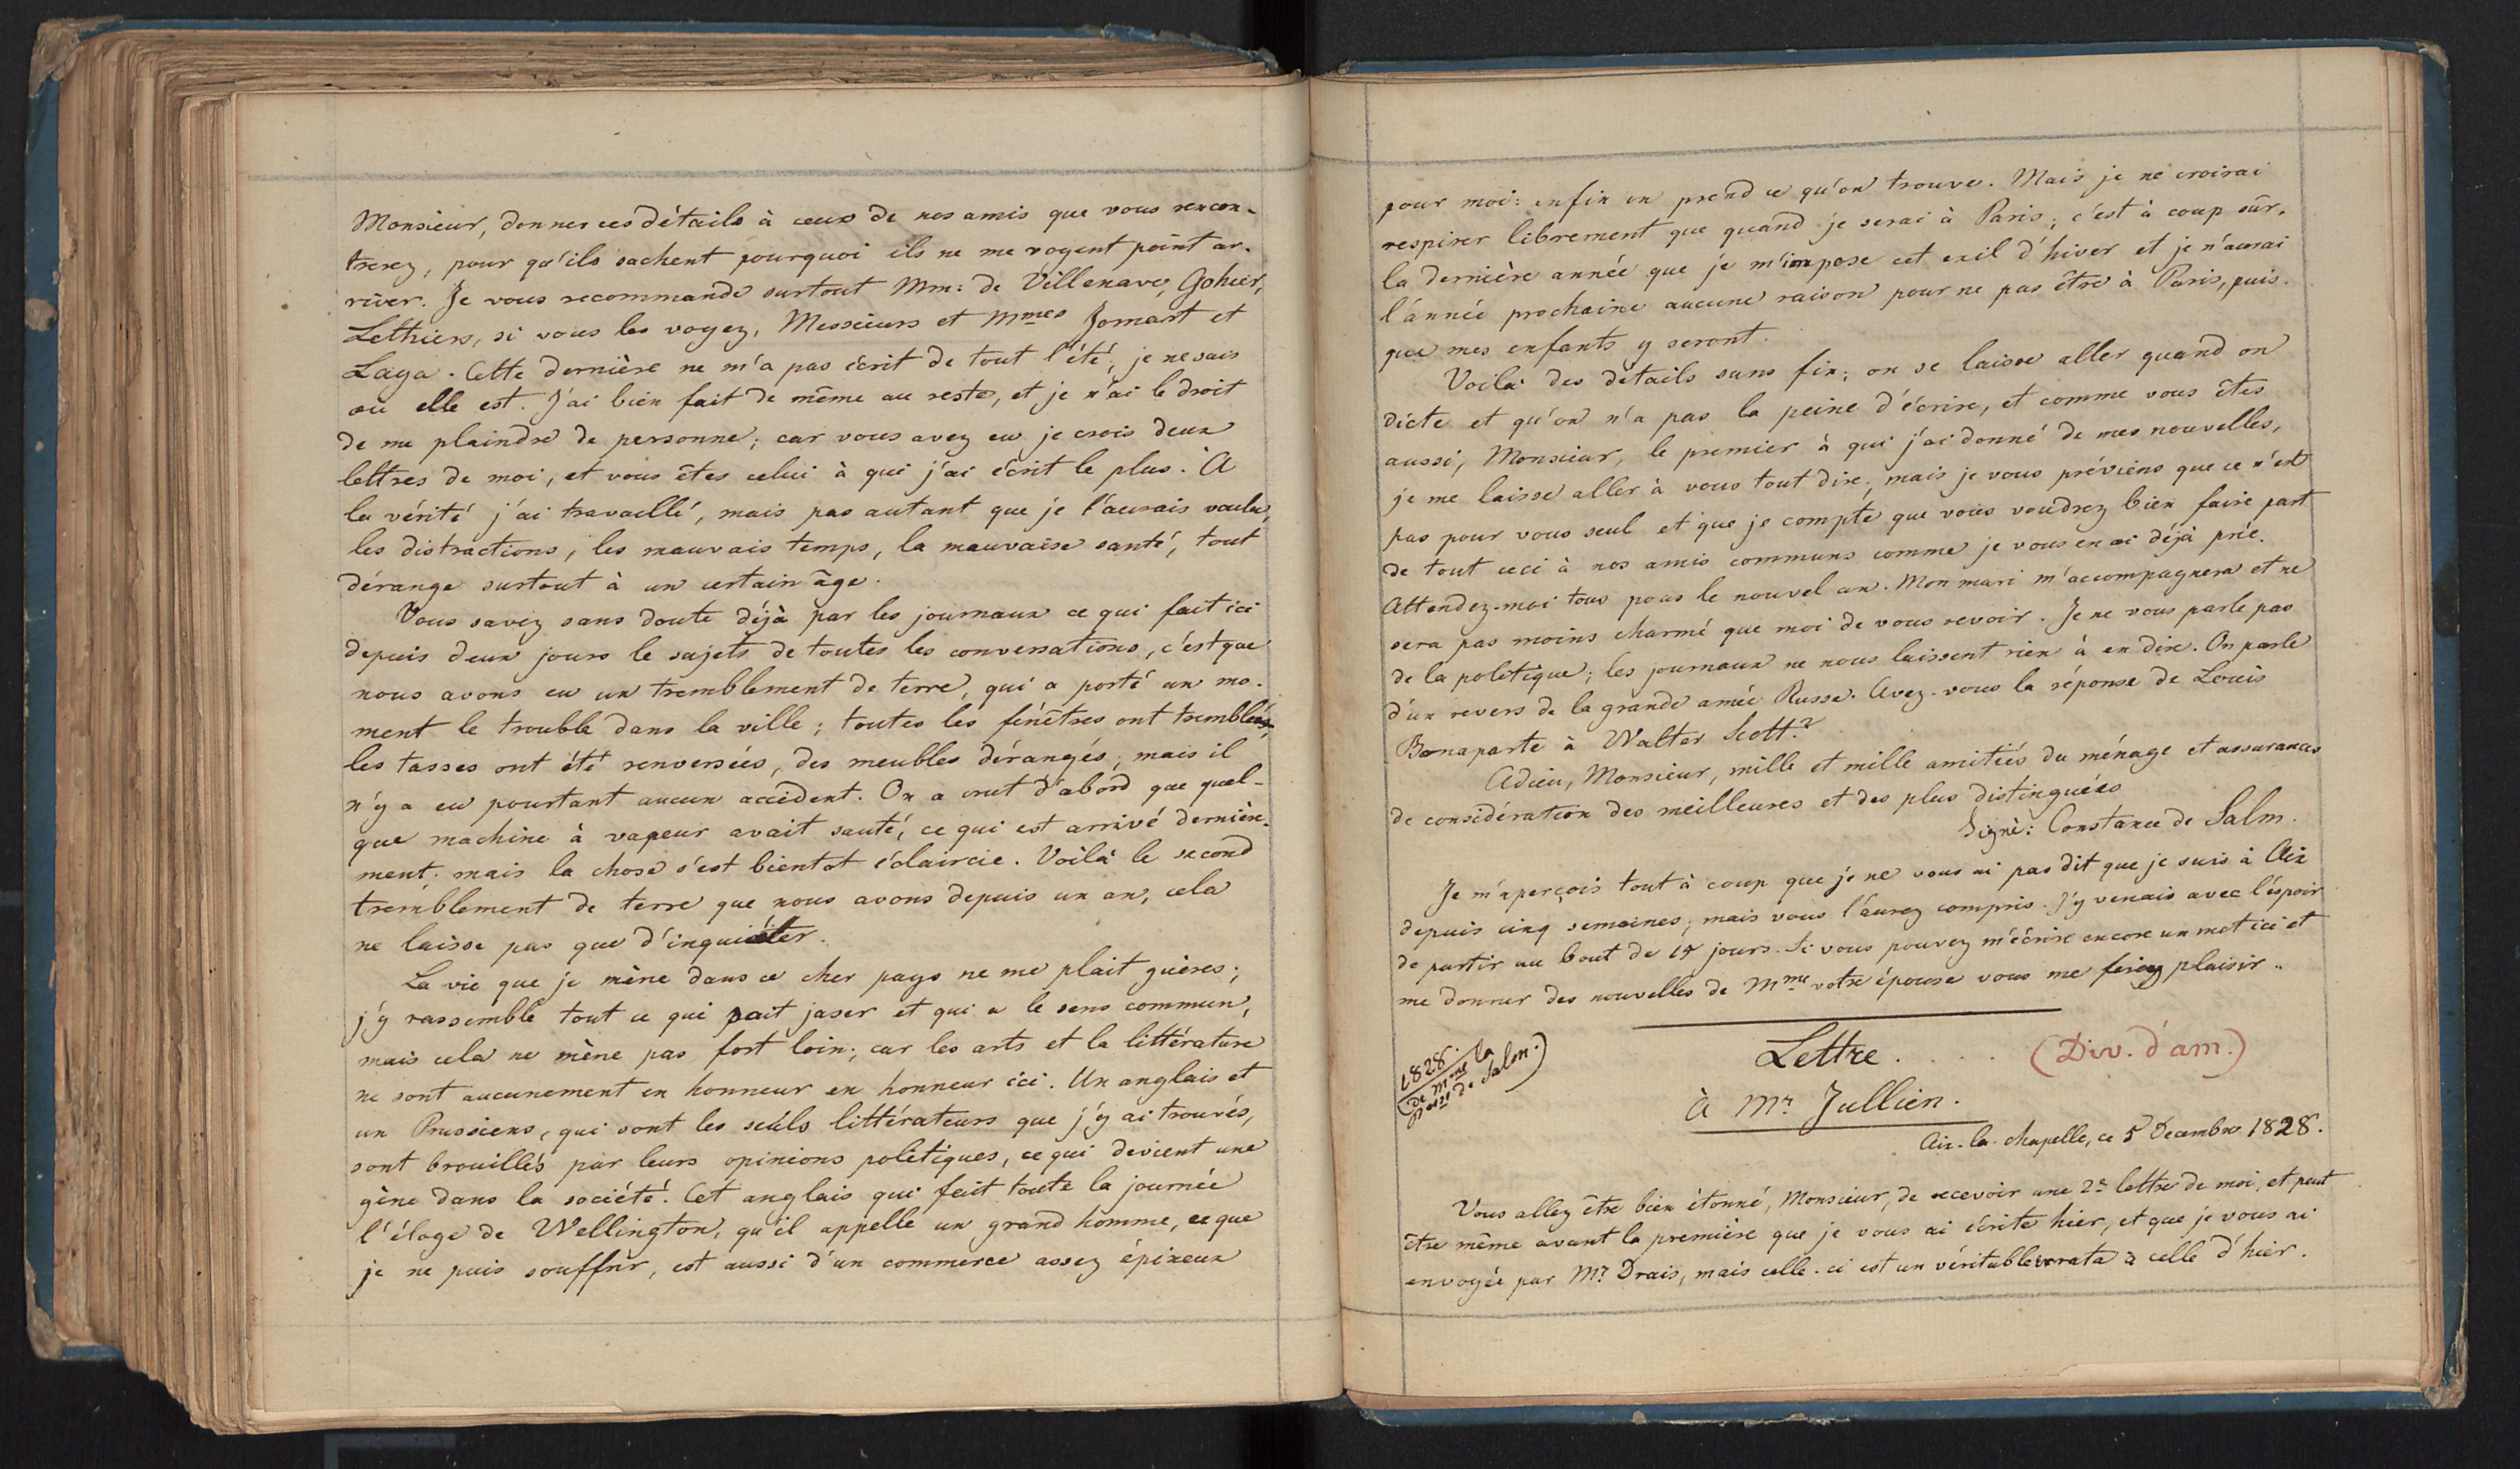 Monsieur, donner ces détails à ceux de nos amis que vous rencon-
trerez, pour qu'ils sachent pourquoi ils ne me voyent point ar-
river. Je vous recommande surtout Mm: de Villenave, Gohier,
Lethiers, si vous les voyez, Messieurs et Mmes Jomart et
Laya. Cette dernière ne m'a pas écrit de tout l'été, je ne sais
ou elle est. J'ai bien fait de même au reste, et je n'ai le droit
de me plaindre de personne; car vous avez eu je crois deux
lettres de moi, et vous êtes celui à qui j'ai écrit le plus. A
la vérité j'ai travaillé, mais pas autant que je l'aurais voulu,
les distractions, les mauvais temps, la mauvaise santé, tout
dérange surtout à un certain âge.
Vous savez sans doute déjà par les journaux ce qui fait ici
depuis deux jours le sujets de toutes les conversations, c'est que
nous avons eu un tremblement de terre, qui a porté un mo-
ment le trouble dans la ville; toutes les fenêtres ont tremblées,
les tasses ont été renversées, des meubles dérangés; mais il
n'y a eu pourtant aucun accident. On a crut d'abord que quel-
que machine à vapeur avait sauté, ce qui est arrivé dernière-
ment; mais la chose s'est bientot éclaircie. Voilà le second
tremblement de terre que nous avons depuis un an, cela
ne laisse pas que d'inquiéter.
La vie que je mène dans ce cher pays ne me plait guères;
j'y rassemble tout ce qui sait jaser et qui a le sens commun,
mais cela ne mène pas fort loin; car les arts et la littérature
ne sont aucunement en honneur en honneur ici. Un anglais et
un Prussiens, qui sont les seuls littérateurs que j'y ai trouvés,
sont brouillés par leurs opinions politiques, ce qui devient une
gène dans la société. Cet anglais qui fait toute la journée
l'éloge de Wellington, qu'il appelle un grand homme, ce que
je ne puis souffrir, est aussi d'un commerce assez épineux
pour moi: enfin on prend ce qu'on trouve. Mais je ne croirai
respirer librement que quand je serai à Paris; c'est à coup sûr,
la dernière année que je m'impose cet exil d'hiver et je n'aurai
l'année prochaine aucune raison pour ne pas être à Paris, puis-
que mes enfants y seront.
Voilà des détails sans fin; on se laisse aller quand on
dicte et qu'on n'a pas la peine d'écrire, et comme vous êtes
aussi, Monsieur, le premier à qui j'ai donné de mes nouvelles,
je me laisse aller à vous tout dire; mais je vous préviens que ce n'est
pas pour vous seul et que je compte que vous voudrez bien faire part
de tout ceci à nos amis communs comme je vous en ai déjà prié.
Attendez-moi tous pour le nouvel an. Mon mari m'accompagnera et ne
sera pas moins charmé que moi de vous revoir. Je ne vous parle pas
de la politique; les journaux ne nous laissent rien à en dire. On parle
d'un revers de la grande amée Russe. Avez-vous la réponse de Louis
Bonaparte à Walter Scott?
Adieu, Monsieur, mille et mille amitiés du ménage et assurances
de considération des meilleures et des plus distinguées
Signé: Constance de Salm.
Je m'aperçois tout à coup que je ne vous ai pas dit que je suis à Aix
depuis cinq semaines; mais vous l'aurez compris. J'y venais avec l'espoir
de partir au bout de 15 jours. Si vous pouvez m'écrire encore un mot ici et
me donner des nouvelles de Mme votre épouse vous me ferez plaisir..
1828.
(de Mme la
Psse de Salm.)
Lettre.... (Div. d'am.)
à Mr Jullien.
Aix-la-chapelle, ce 5 Decembre 1828.
Vous allez être bien étonné, Monsieur, de recevoir une 2e lettre de moi, et peut
être même avant la première que je vous ai écrite hier, et que je vous ai
envoyée par Mr Drais, mais celle-ci est un véritable errata à celle d'hier.